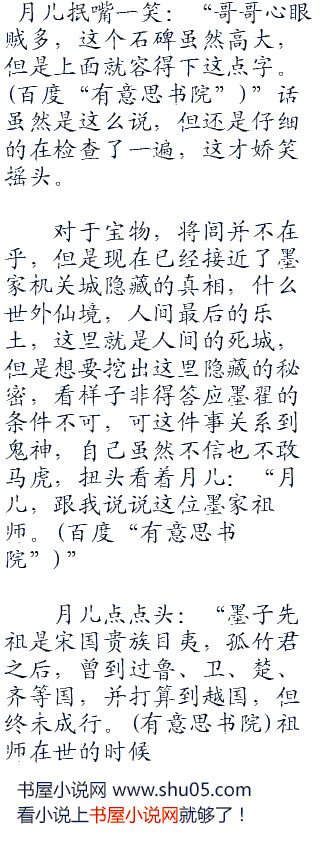 月儿抿嘴一笑：“哥哥心眼
贼多，这个石碑虽然高大，
但是上面就容得下这点字。
(百度“有意思书院”)”话
虽然是这么说，但还是仔细
的在检查了一遍，这才娇笑
摇头。
对于宝物，将闾并不在
乎，但是现在已经接近了墨
家机关城隐藏的真相，什么
世外仙境，人间最后的乐
土，这里就是人间的死城，
但是想要挖出这里隐藏的秘
密，看样子非得答应墨翟的
条件不可，可这件事关系到
鬼神，自己虽然不信也不敢
马虎，扭头看着月儿：“月
儿，跟我说说这位墨家祖
师。(百度“有意思书
院”)”
月儿点点头：“墨子先
祖是宋国贵族目夷，孤竹君
之后，曾到过鲁、卫、楚、
齐等国，并打算到越国，但
终未成行。(有意思书院)祖
师在世的时候
书屋小说网 www.shu05.com
看小说上书屋小说网就够了！